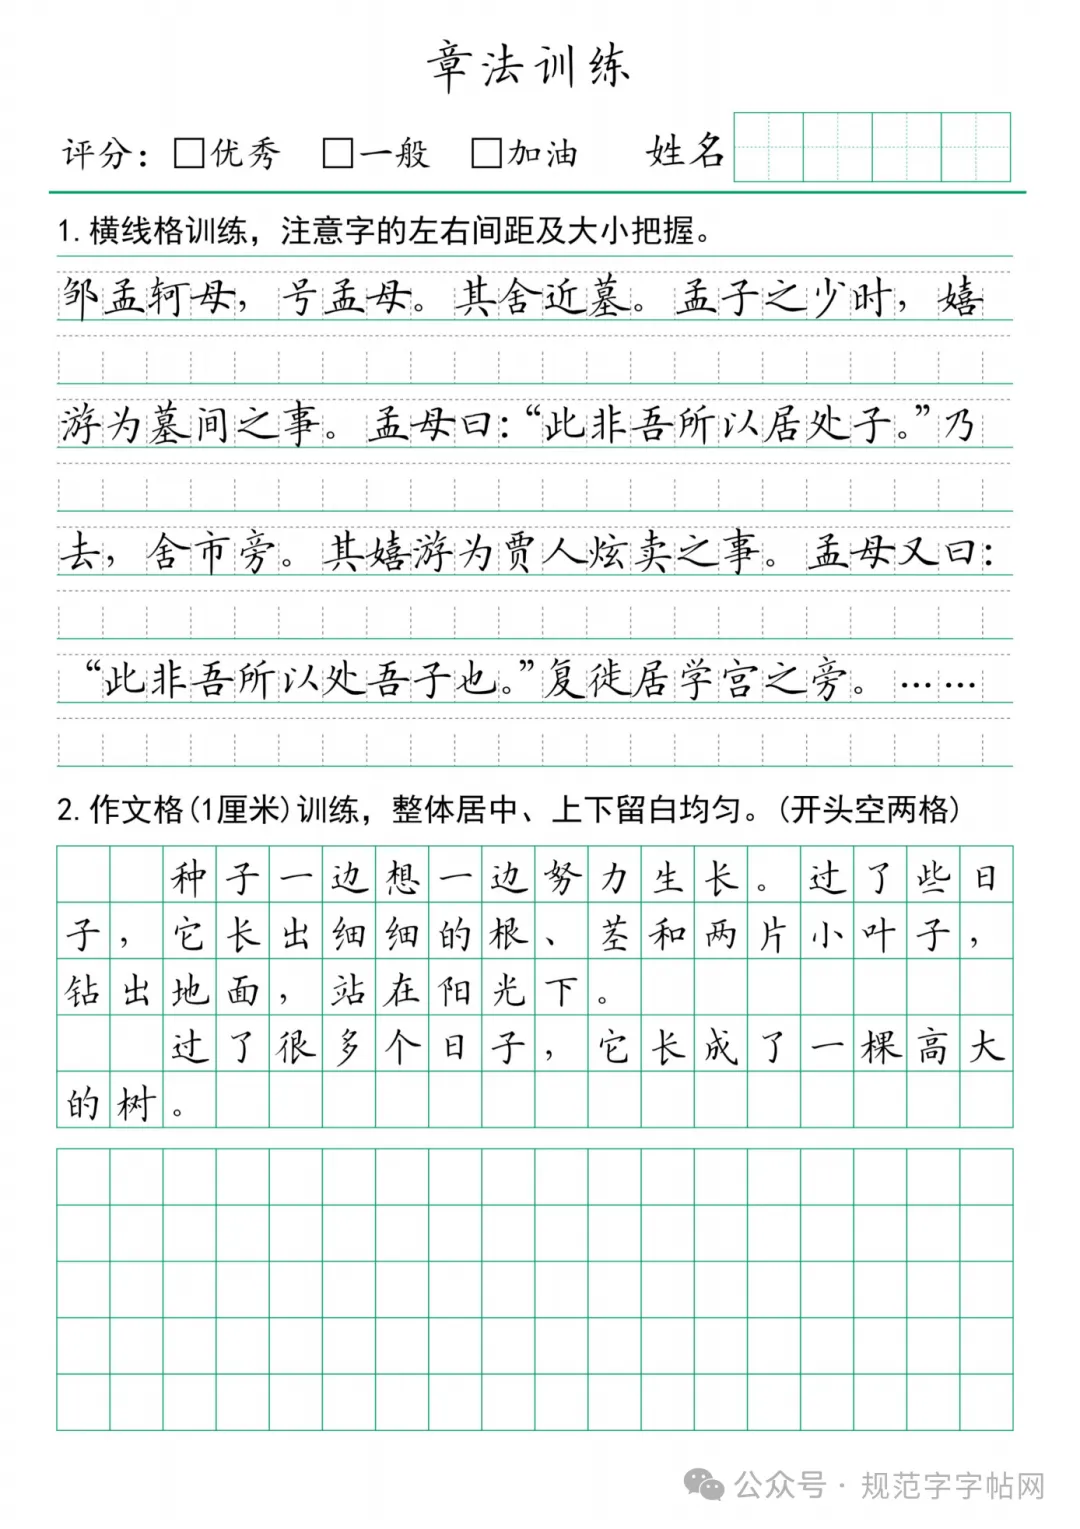 章法训练
评分：□优秀 □一般 □加油 姓名
1.横线格训练，注意字的左右间距及大小把握。
邹孟轲母，号孟母。其舍近墓。孟子之少时，嬉
游为墓间之事。孟母曰：“此非吾所以居处子。”乃
去，舍市旁。其嬉游为贾人炫卖之事。孟母又曰：
“此非吾所以处吾子也。”复徙居学宫之旁。……
2.作文格(1厘米)训练，整体居中、上下留白均匀。(开头空两格)
种子一边想一边努力生长。过了些日
子，它长出细细的根、茎和两片小叶子，
钻出地面，站在阳光下。
过了很多个日子，它长成了一棵高大
的树。
公众号·规范字字帖网